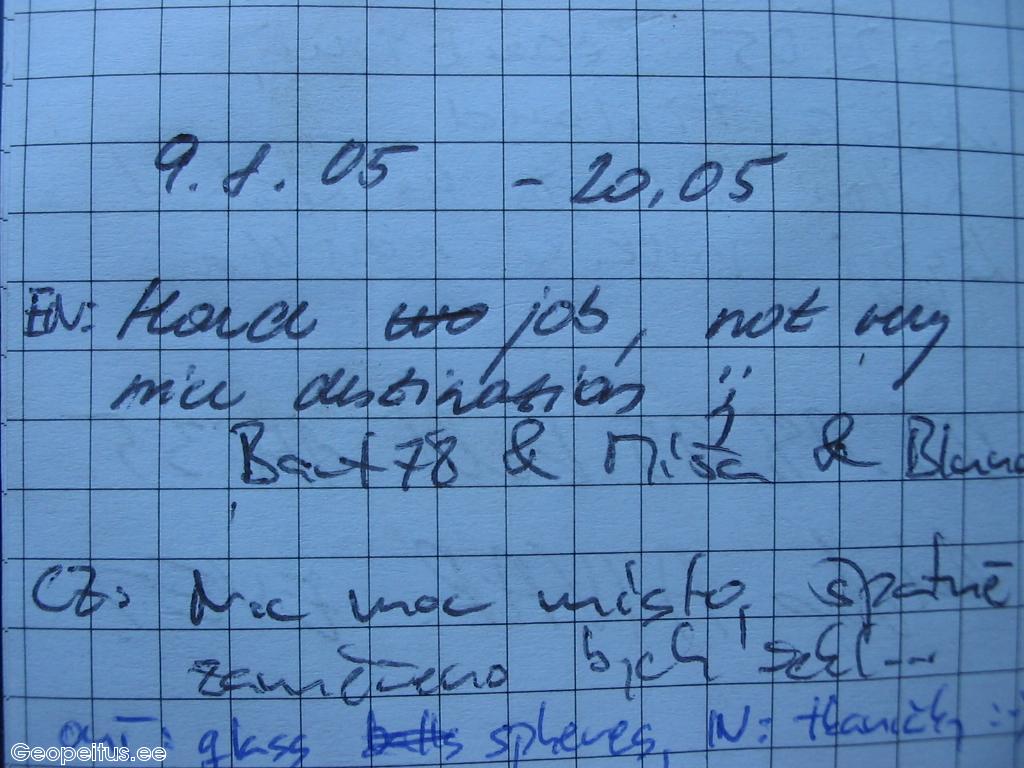 9. 8. 05 - 20.05
EN: Hard job, not very
nice destination ;
Bart78 & Míša & Blana
CZ: Nic moc místo, špatně
zaměřeno bych řekl ---
OUT: glass balls spheres, IN: tkaničky :-)
Geopeitus.ee